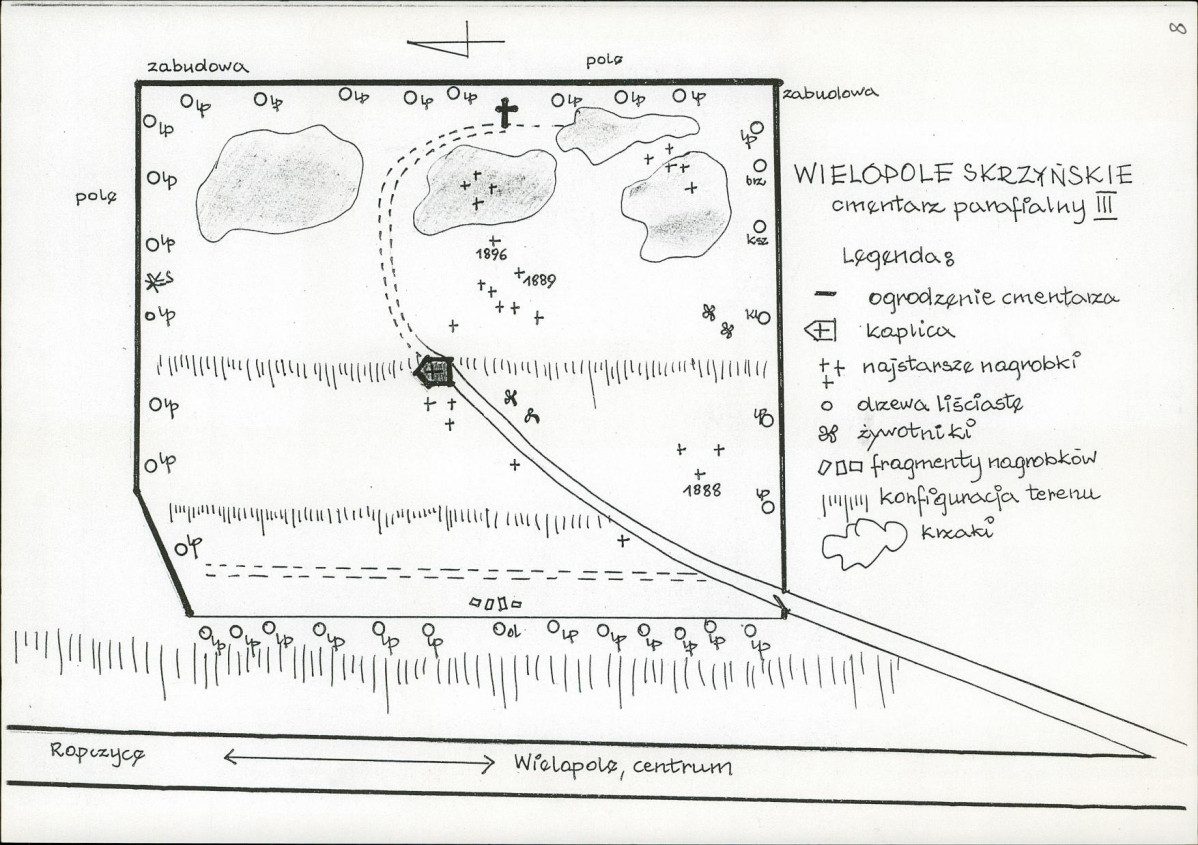 8
zabudowa
pole
zabudowa
lp lp lp lp lp lp lp lp
lp
lp
lp
brz
pole
lp
WIELOPOLE SKRZYŃSKIE
cmentarz parafialny III
lp
ksz
1896
1889
Legenda:
ogrodzenie cmentarza
św
lp
kl
kaplica
najstarsze nagrobki
lp
lp
drzewa liściaste
żywotniki
lp
fragmenty nagrobków
1888
lp
konfiguracja terenu
krzaki
lp
lp lp lp lp lp lp ol lp lp lp lp lp lp
Ropczyce
Wielopole, centrum